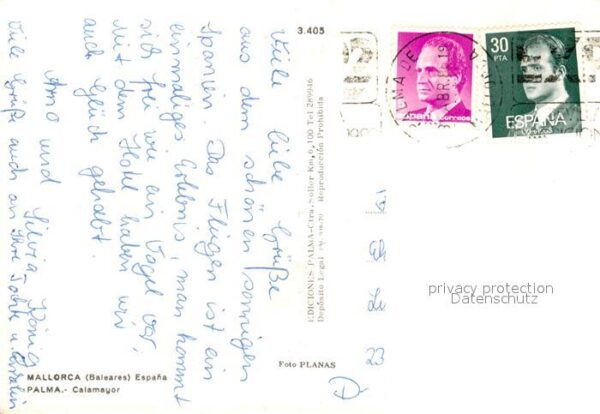 3.405
Viele liebe Grüße
aus dem schönen sonnigen
Spanien. Das Fliegen ist ein
einmaliges Erlebnis, man kommt
sich frei wie ein Vogel vor.
Mit dem Hotel haben wir
auch Glück gehabt.
Arno und Silvia König
Viele Grüße auch an Ihre Tochter u.
EDICIONES PALMA-Ctra. Soller Km, 6,100 Tel 289946
Depósito Legal Reproducción Prohibida
Foto PLANAS
MALLORCA (Baleares) España
PALMA.- Calamayor
España correos
30
PTA
ESPAÑA
correos
privacy protection
Datenschutz